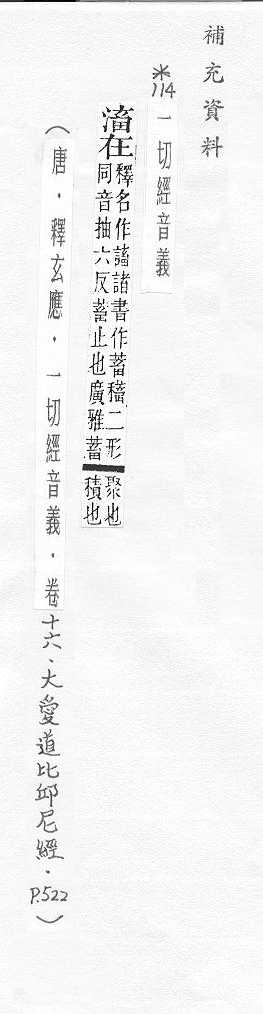 補充資料
*114 一切經音義
滀在釋名作蓄諸書作蓄稸二形
同音抽六反蓄止也廣雅蓄
聚也
積也
（唐．釋玄應．一切經音義．卷十六、大愛道比邱尼經．P.522）